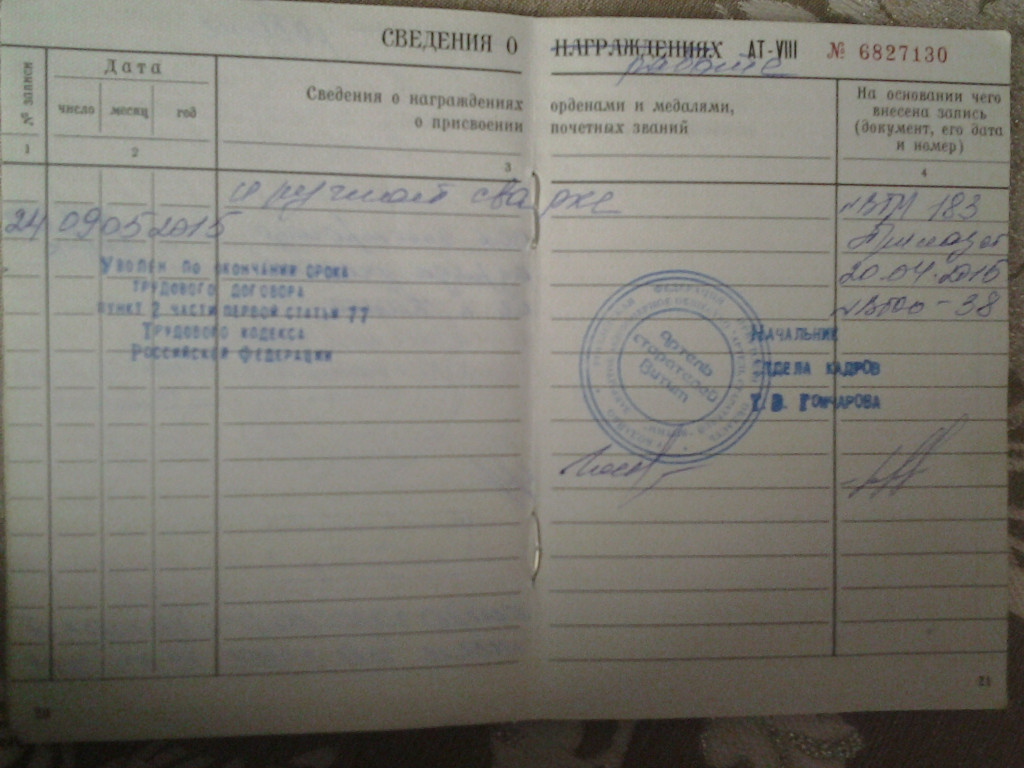 СВЕДЕНИЯ О НАГРАЖДЕНИЯХ АТ-VIII № 6827130
работе
№ записи
Дата
число месяц год
Сведения о награждениях орденами и медалями,
о присвоении почетных званий
На основании чего
внесена запись
(документ, его дата
и номер)
1 2 3 4
и ручной сварке
№ВТМ 183
24 09 05 2015
Приказ от
20.04.2015
№ВТ00-38
Уволен по окончании срока
трудового договора
пункт 2 части первой статьи 77
Трудового кодекса
Российской Федерации
Артель
старателей
Витим
Начальник
отдела кадров
Т.В. Гончарова
20
21